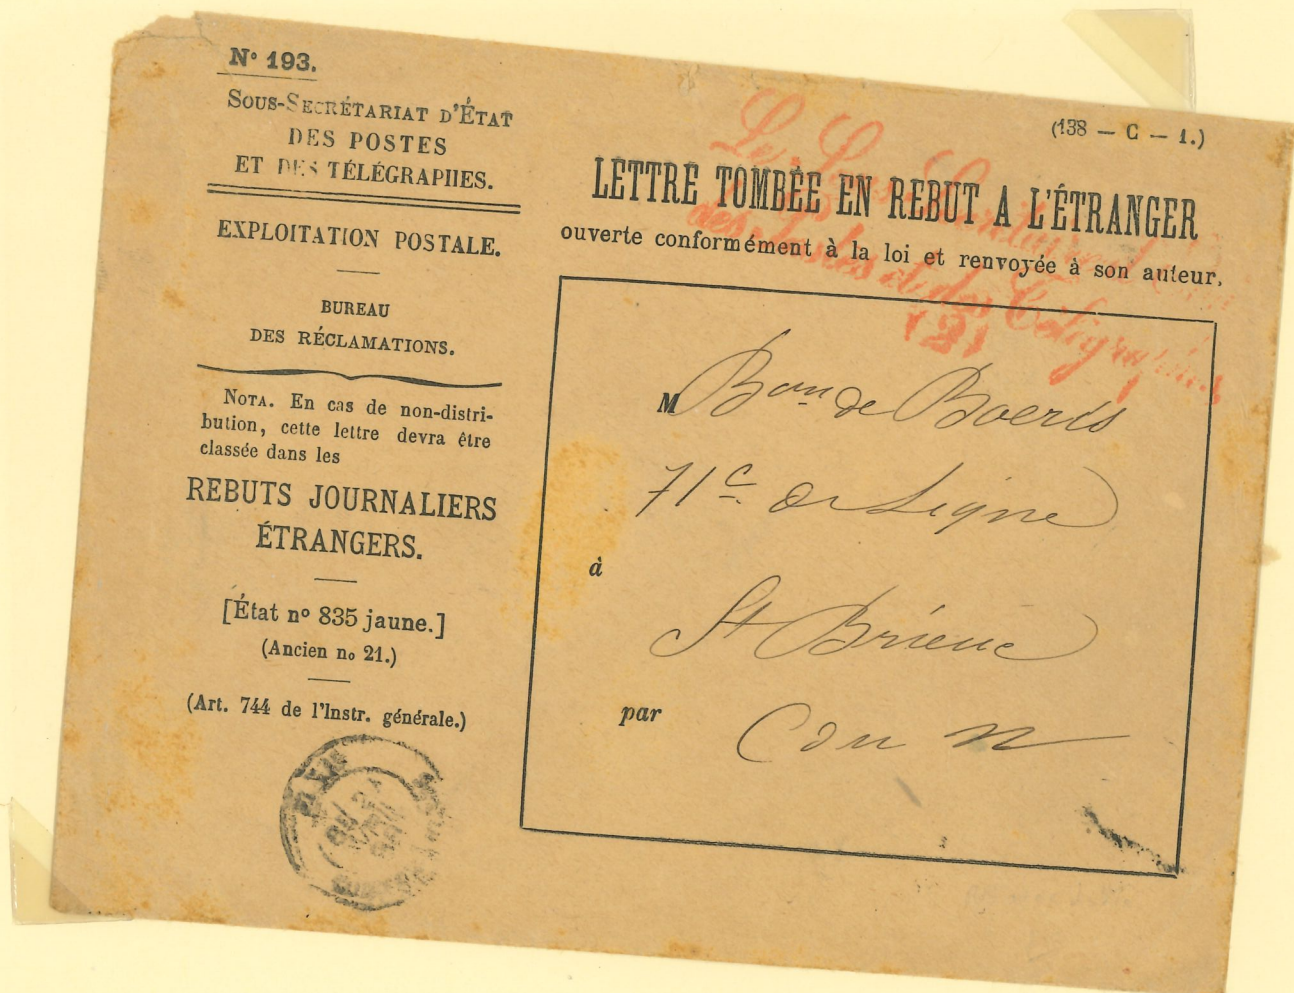 N° 193.
SOUS-SECRÉTARIAT D'ÉTAT
DES POSTES
ET DES TÉLÉGRAPHES.
EXPLOITATION POSTALE.
BUREAU
DES RÉCLAMATIONS.
NOTA. En cas de non-distri-
bution, cette lettre devra être
classée dans les
REBUTS JOURNALIERS
ÉTRANGERS.
[État nº 835 jaune.]
(Ancien no 21.)
(Art. 744 de l'Instr. générale.)
(138 — C — 1.)
Le Sous
des Postes et des Télégraphes
(2)
LETTRE TOMBÉE EN REBUT A L'ÉTRANGER
ouverte conformément à la loi et renvoyée à son auteur.
M Bon de
71e de Ligne
à
St Brieuc
par